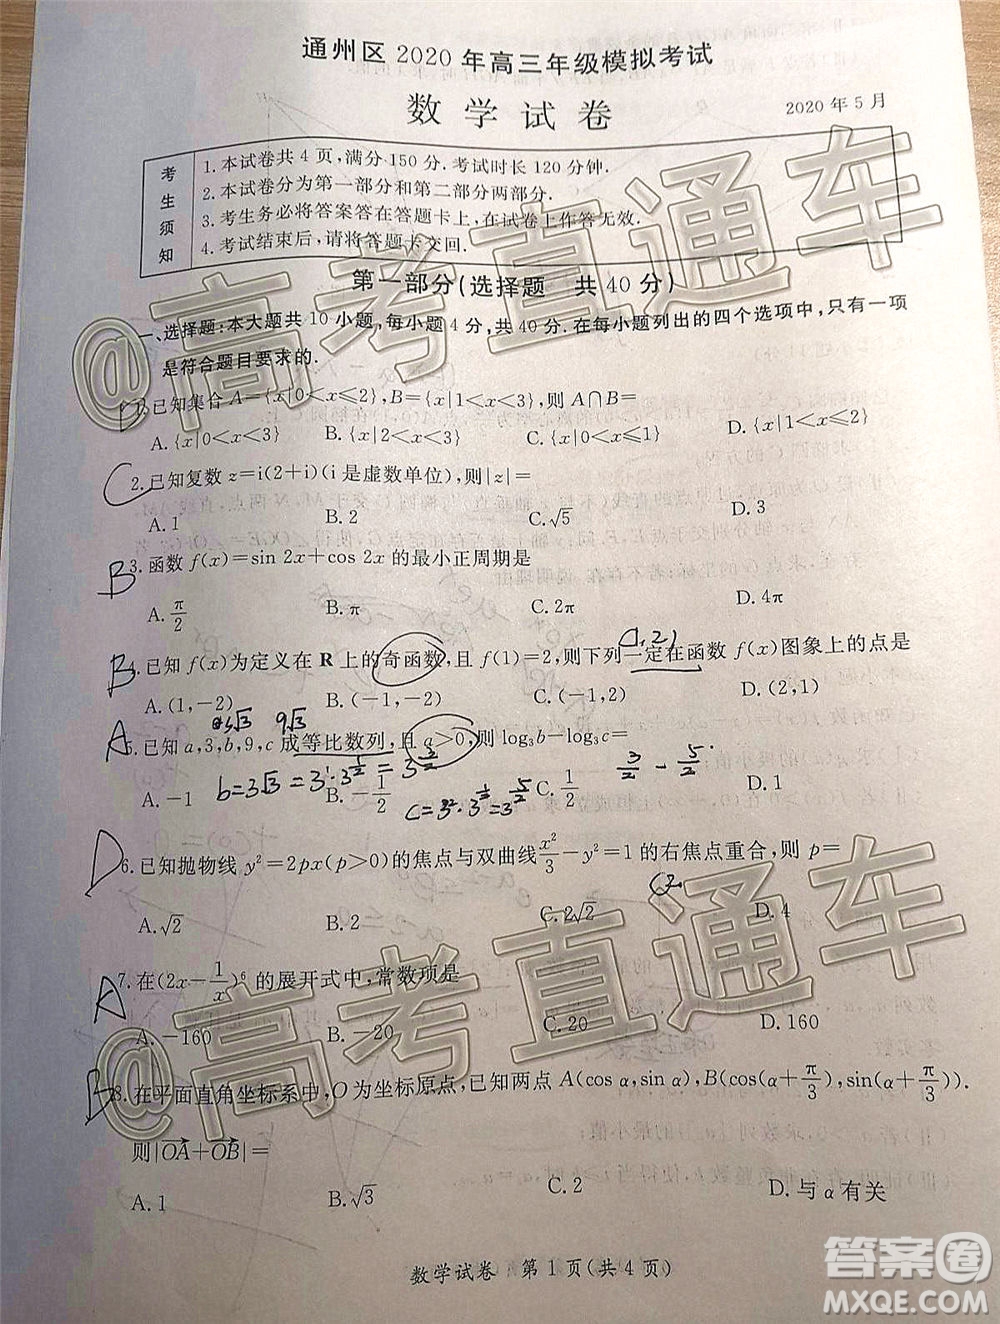 通州区 2020 年高三年级模拟考试
数 学 试 卷
2020 年 5 月
考生须知
1. 本试卷共 4 页，满分 150 分. 考试时长 120 分钟.
2. 本试卷分为第一部分和第二部分两部分.
3. 考生务必将答案答在答题卡上，在试卷上作答无效.
4. 考试结束后，请将答题卡交回.
第一部分(选择题 共 40 分)
一、选择题:本大题共 10 小题，每小题 4 分，共 40 分. 在每小题列出的四个选项中，只有一项
是符合题目要求的.
1. 已知集合 A={x|0<x≤2}, B={x|1<x<3}, 则 A∩B=
A. {x|0<x<3} B. {x|2<x<3} C. {x|0<x≤1} D. {x|1<x≤2}
C
2. 已知复数 z=i(2+i)(i 是虚数单位), 则|z|=
A. 1 B. 2 C. √5 D. 3
B
3. 函数 f(x)=sin 2x+cos 2x 的最小正周期是
A. π/2 B. π C. 2π D. 4π
(1,2)
B
4. 已知 f(x)为定义在 R 上的奇函数, 且 f(1)=2, 则下列一定在函数 f(x)图象上的点是
A. (1,-2) B. (-1,-2) C. (-1,2) D. (2,1)
3√3 9√3
A
5. 已知 a,3,b,9,c 成等比数列, 且 a>0, 则 log₃b-log₃c=
3/2 - 5/2
A. -1 B. -1/2 C. 1/2 D. 1
b=3√3=3¹·3^(1/2)=3^(3/2)
c=3²·3^(1/2)=3^(5/2)
D
6. 已知抛物线 y²=2px(p>0)的焦点与双曲线 x²/3-y²=1 的右焦点重合, 则 p=
(2.
A. √2 B. 2 C. 2√2 D. 4
A
7. 在(2x-1/x)⁶ 的展开式中, 常数项是
A. -160 B. -20 C. 20 D. 160
B
8. 在平面直角坐标系中, O 为坐标原点, 已知两点 A(cos α, sin α), B(cos(α+π/3), sin(α+π/3)).
则|OA+OB|=
A. 1 B. √3 C. 2 D. 与 α 有关
数学试卷 第 1 页(共 4 页)
@高考直通车
@高考直通车
答案圈
MXQE.COM